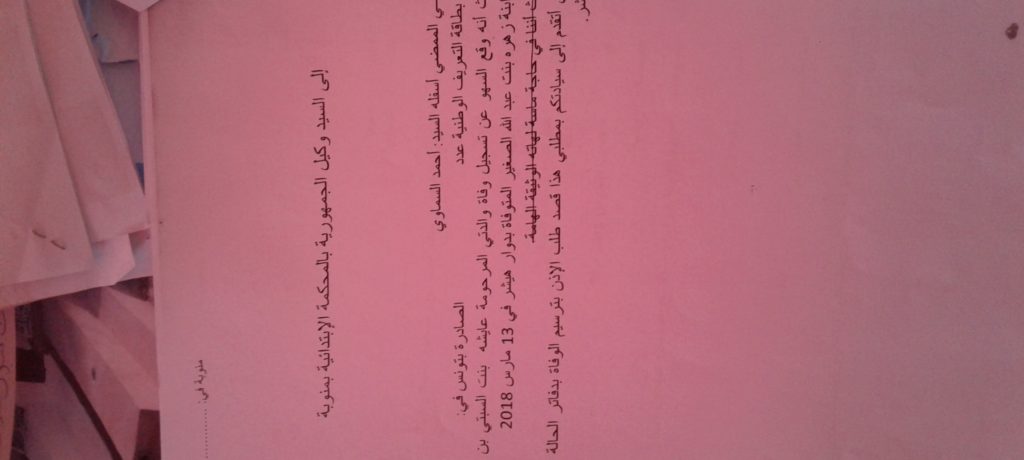 منوبة في: ....................
إلى السيد وكيل الجمهورية بالمحكمة الإبتدائية بمنوبة
ـي الممضي أسفله السيد: أحمد السماوي
بطاقة التعريف الوطنية عدد الصادرة بتونس في:
ـث أنه وقع السهو عن تسجيل وفاة والدتي المرحومة عايشه بنت السبتي بن
ابنة زهره بنت عبد الله الصغير المتوفاة بدوار هيشر في 13 مارس 2018
ـث أننا في حاجة ماسة لهاته الوثيقة الهامة
أتقدم إلى سيادتكم بمطلبي هذا قصد طلب الإذن بترسيم الوفاة بدفاتر الحالة